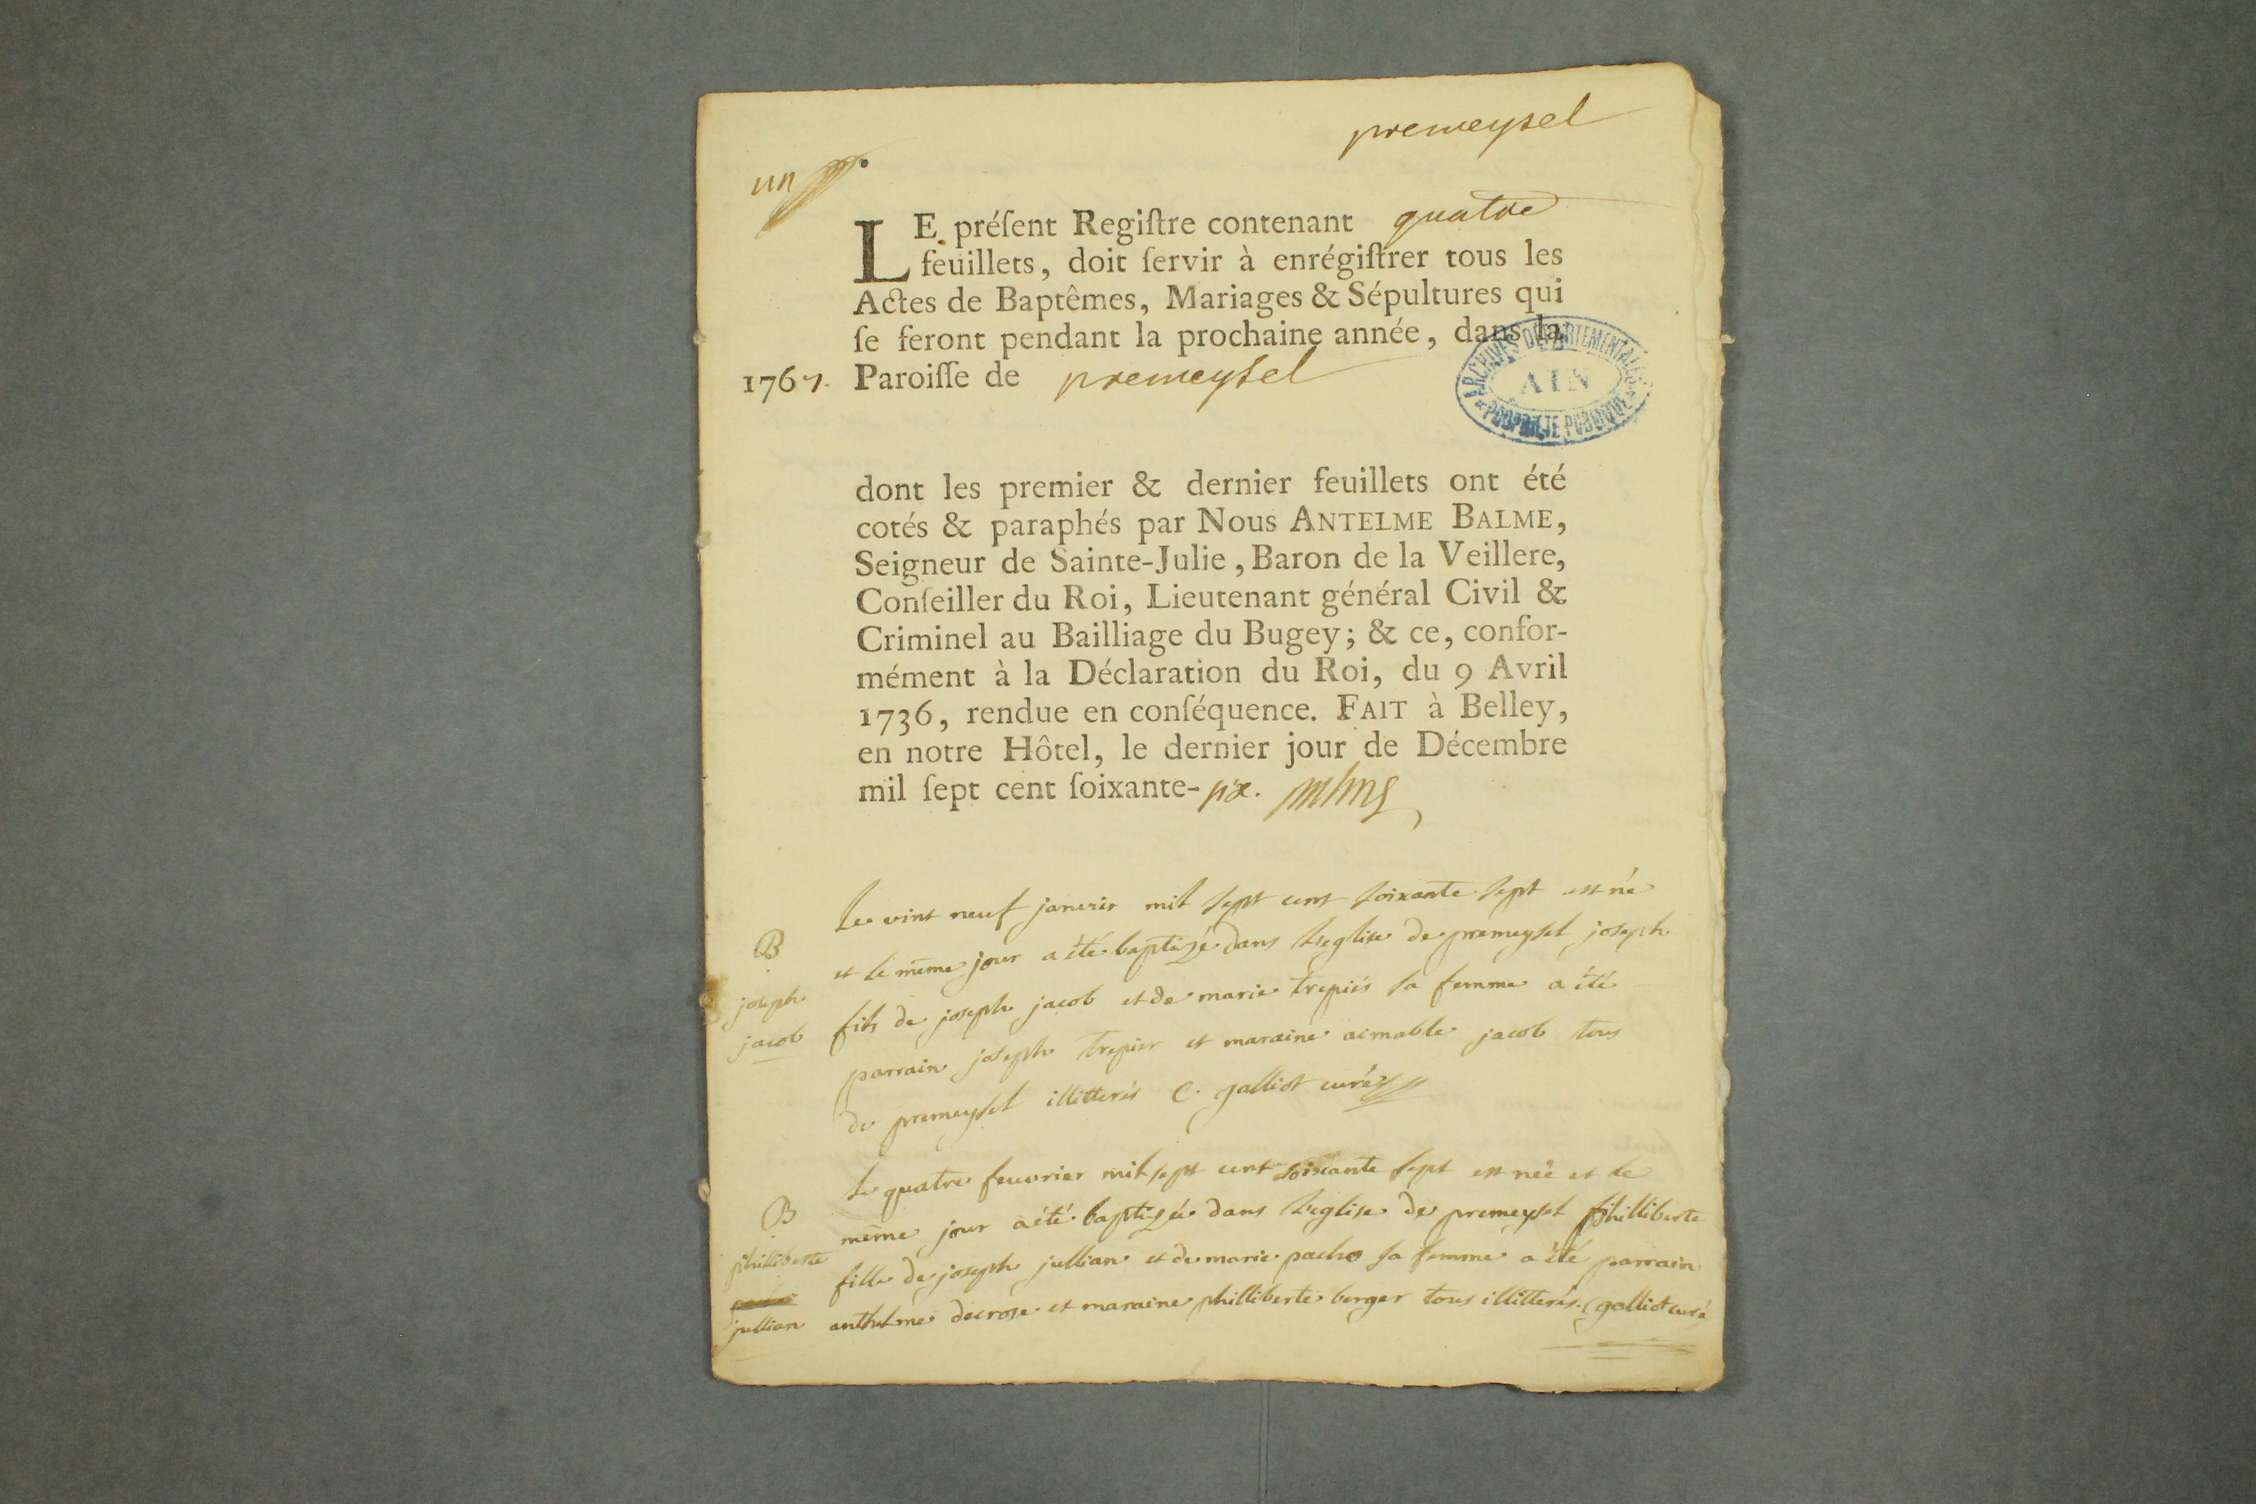 premeysel
un
LE préſent Regiſtre contenant quatre
feuillets, doit ſervir à enrégiſtrer tous les
Actes de Baptêmes, Mariages & Sépultures qui
ſe feront pendant la prochaine année, dans la
1767. Paroiſſe de premeysel
ARCHIVES DÉPARTEMENTALES
AIN
PROPRIÉTÉ PUBLIQUE
dont les premier & dernier feuillets ont été
cotés & paraphés par Nous ANTELME BALME,
Seigneur de Sainte-Julie, Baron de la Veillere,
Conſeiller du Roi, Lieutenant général Civil &
Criminel au Bailliage du Bugey; & ce, confor-
mément à la Déclaration du Roi, du 9 Avril
1736, rendue en conſéquence. FAIT à Belley,
en notre Hôtel, le dernier jour de Décembre
mil ſept cent ſoixante-six.
B
joseph
jacob
Le vint neuf janvier mil sept cent soixante sept est né
et le même jour a été baptizé dans l'eglise de premeysel joseph
fils de joseph jacob et de marie trepier sa femme a été
parrain joseph trepier et maraine aimable jacob tous
de premeysel illitterés C. galliot curé
B
philliberte
jullian
Le quatre feuvrier mil sept cent soixante sept est née et le
même jour a été baptizée dans l'eglise de premeysel philliberte
fille de joseph jullian et de marie pacho sa femme a été parrain
anthelme decrose et maraine philliberte berger tous illitterés. C galliot curé